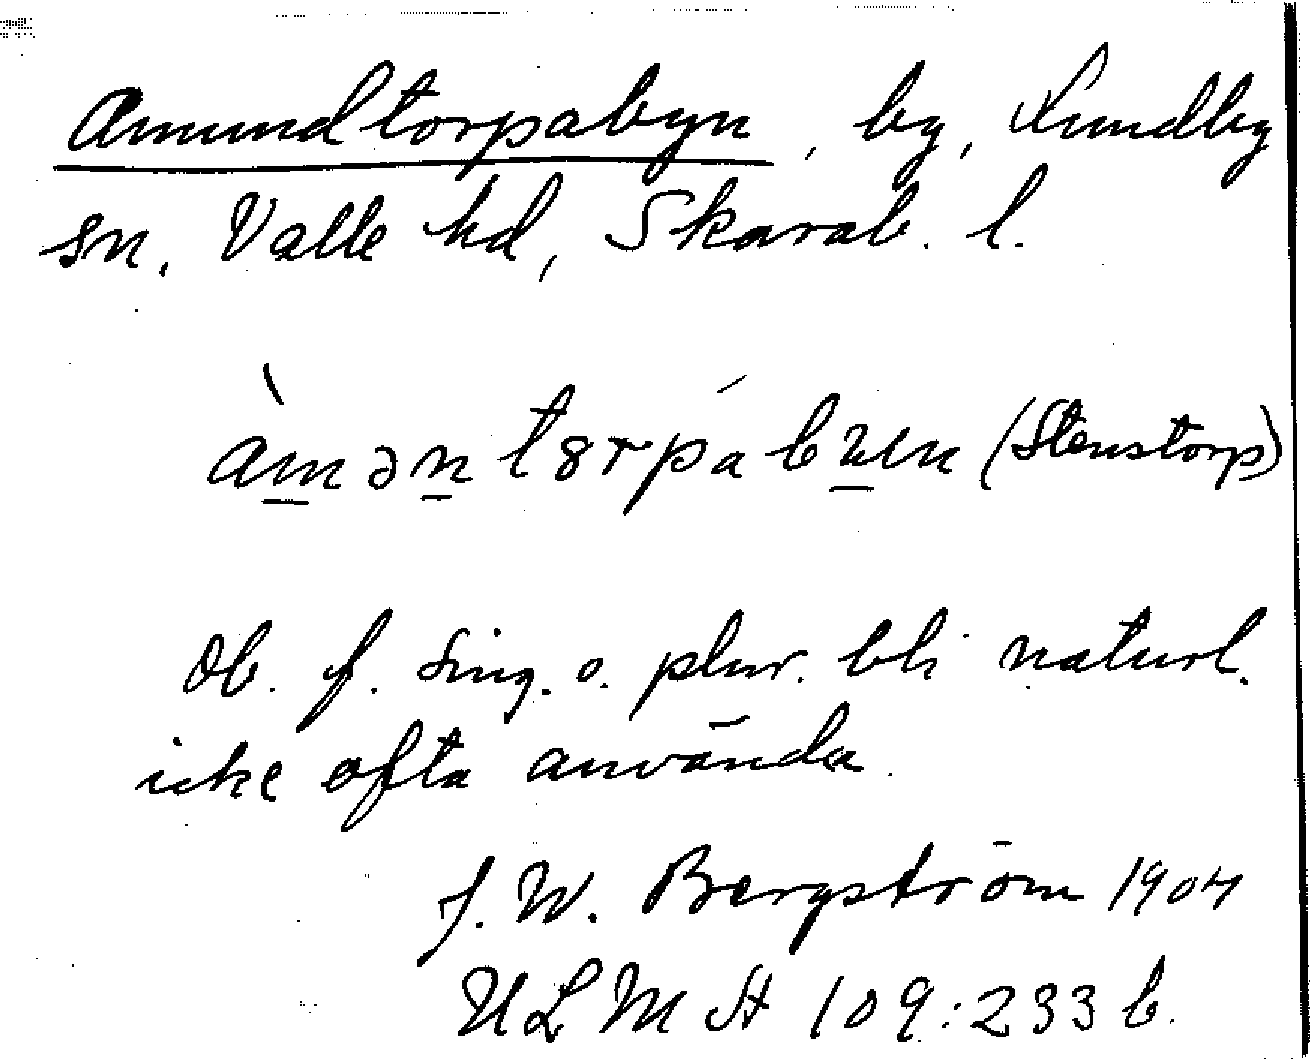 Amundtorpabyn, by, Lundby
sn, Valle hd, Skarab. l.
(Stenstorp)
Ob. f. sing. o. plur. bli naturl.
icke ofta använda.
J. W. Bergström 1904
ULMA 109:233 b.